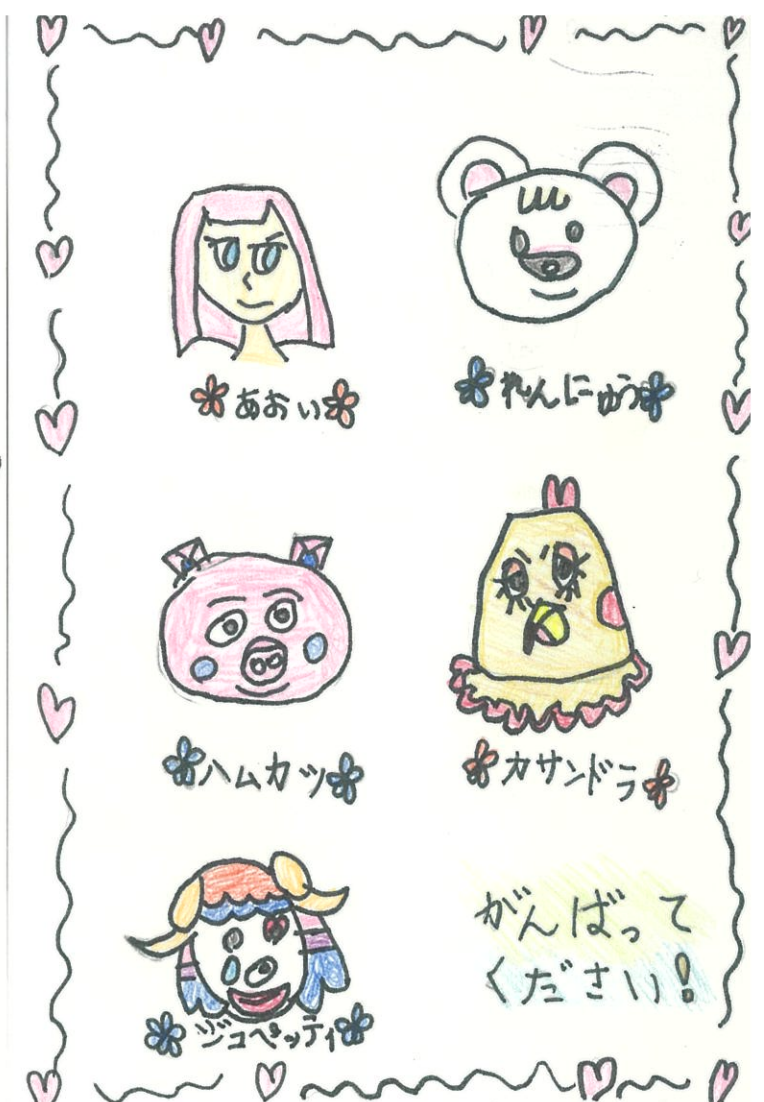 あおい
れんにゅう
ハムカツ
カサンドラ
ジュペッティ
がんばって
ください!